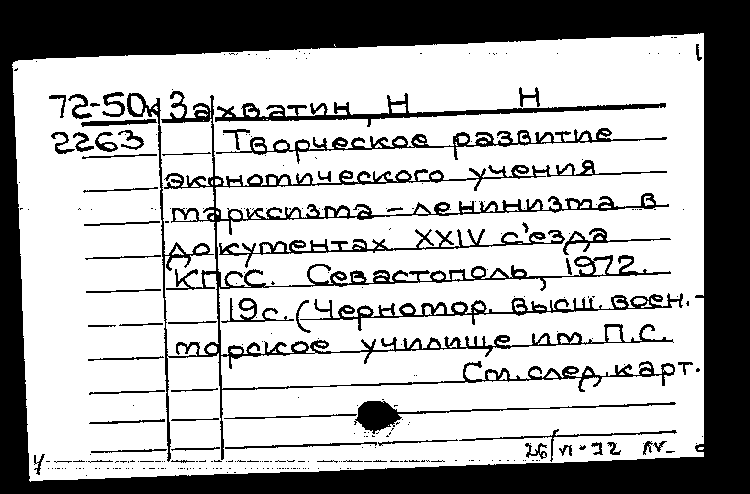 72-50к Захватин, Н Н
2263 Творческое развитие
экономического учения
марксизма-ленинизма в
документах XXIV с'езда
КПСС. Севастополь, 1972.
19с. (Черномор. высш. воен.-
морское училище им. П.С.
См. след. карт.
26/VI-72